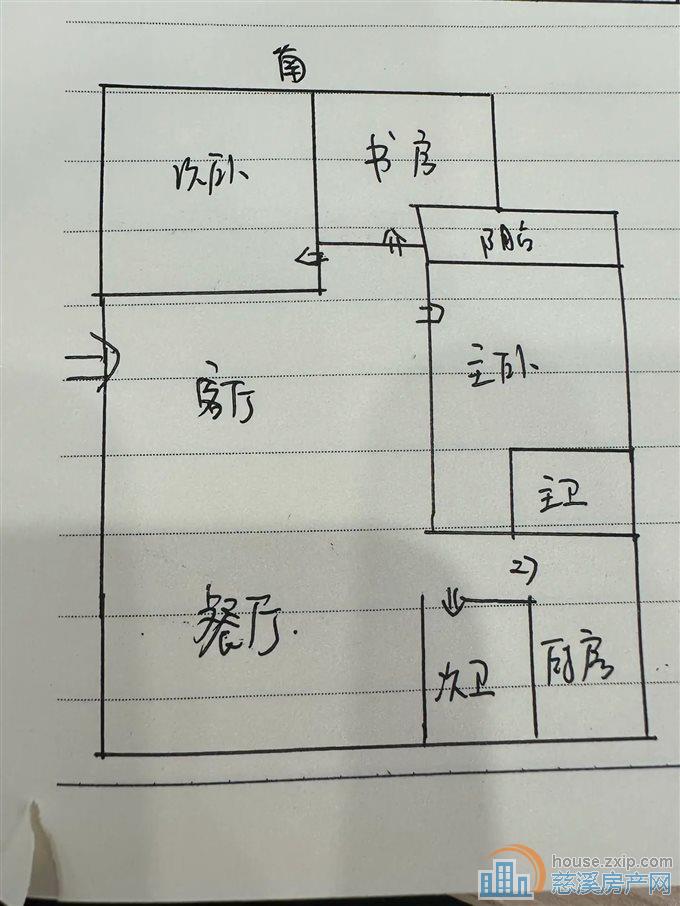 南
次卧
书房
阳台
主卧
客厅
主卫
餐厅
次卫
厨房
house.zxip.com
慈溪房产网